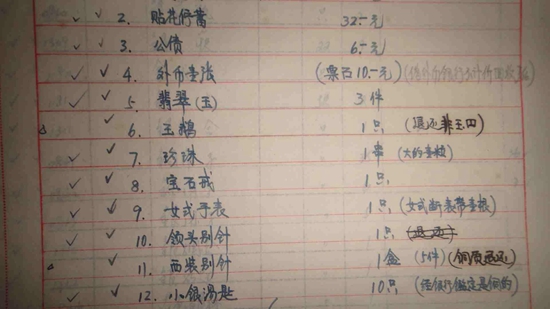 2. 贴花储蓄 32.-元
3. 公债 6.-元
4. 外币壹张 (票面10.-元)
5. 翡翠(玉) 3件
6. 玉鹅 1只 (退还非玉的)
7. 珍珠 1串 (大的壹粒)
8. 宝石戒 1只
9. 女式手表 1只 (女式断表带壹根)
10. 领头别针 1只
11. 西装别针 1盒 (5件) (铜质退还)
12. 小银汤匙 10只 (经银行鉴定是铜的)